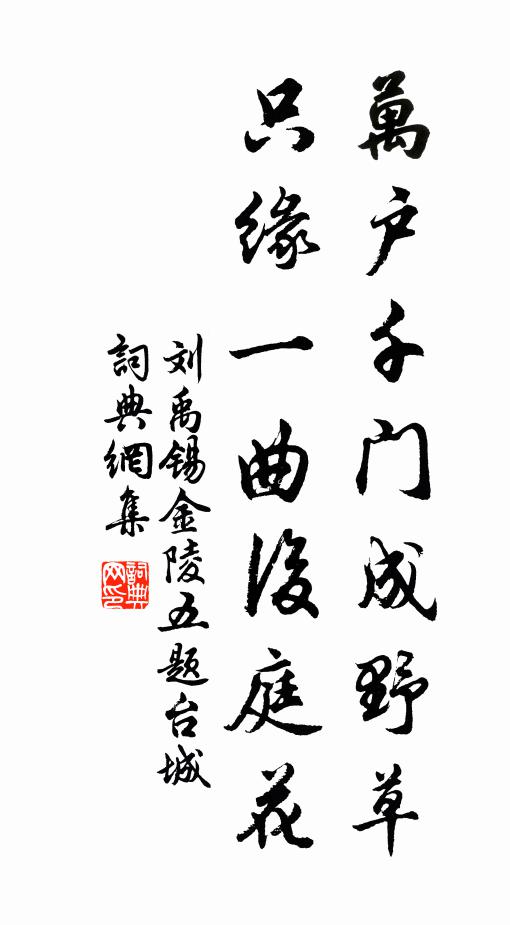 萬户千门成野草
只缘一曲後庭花
刘禹锡金陵五题台城
詞典網集
詞典网印